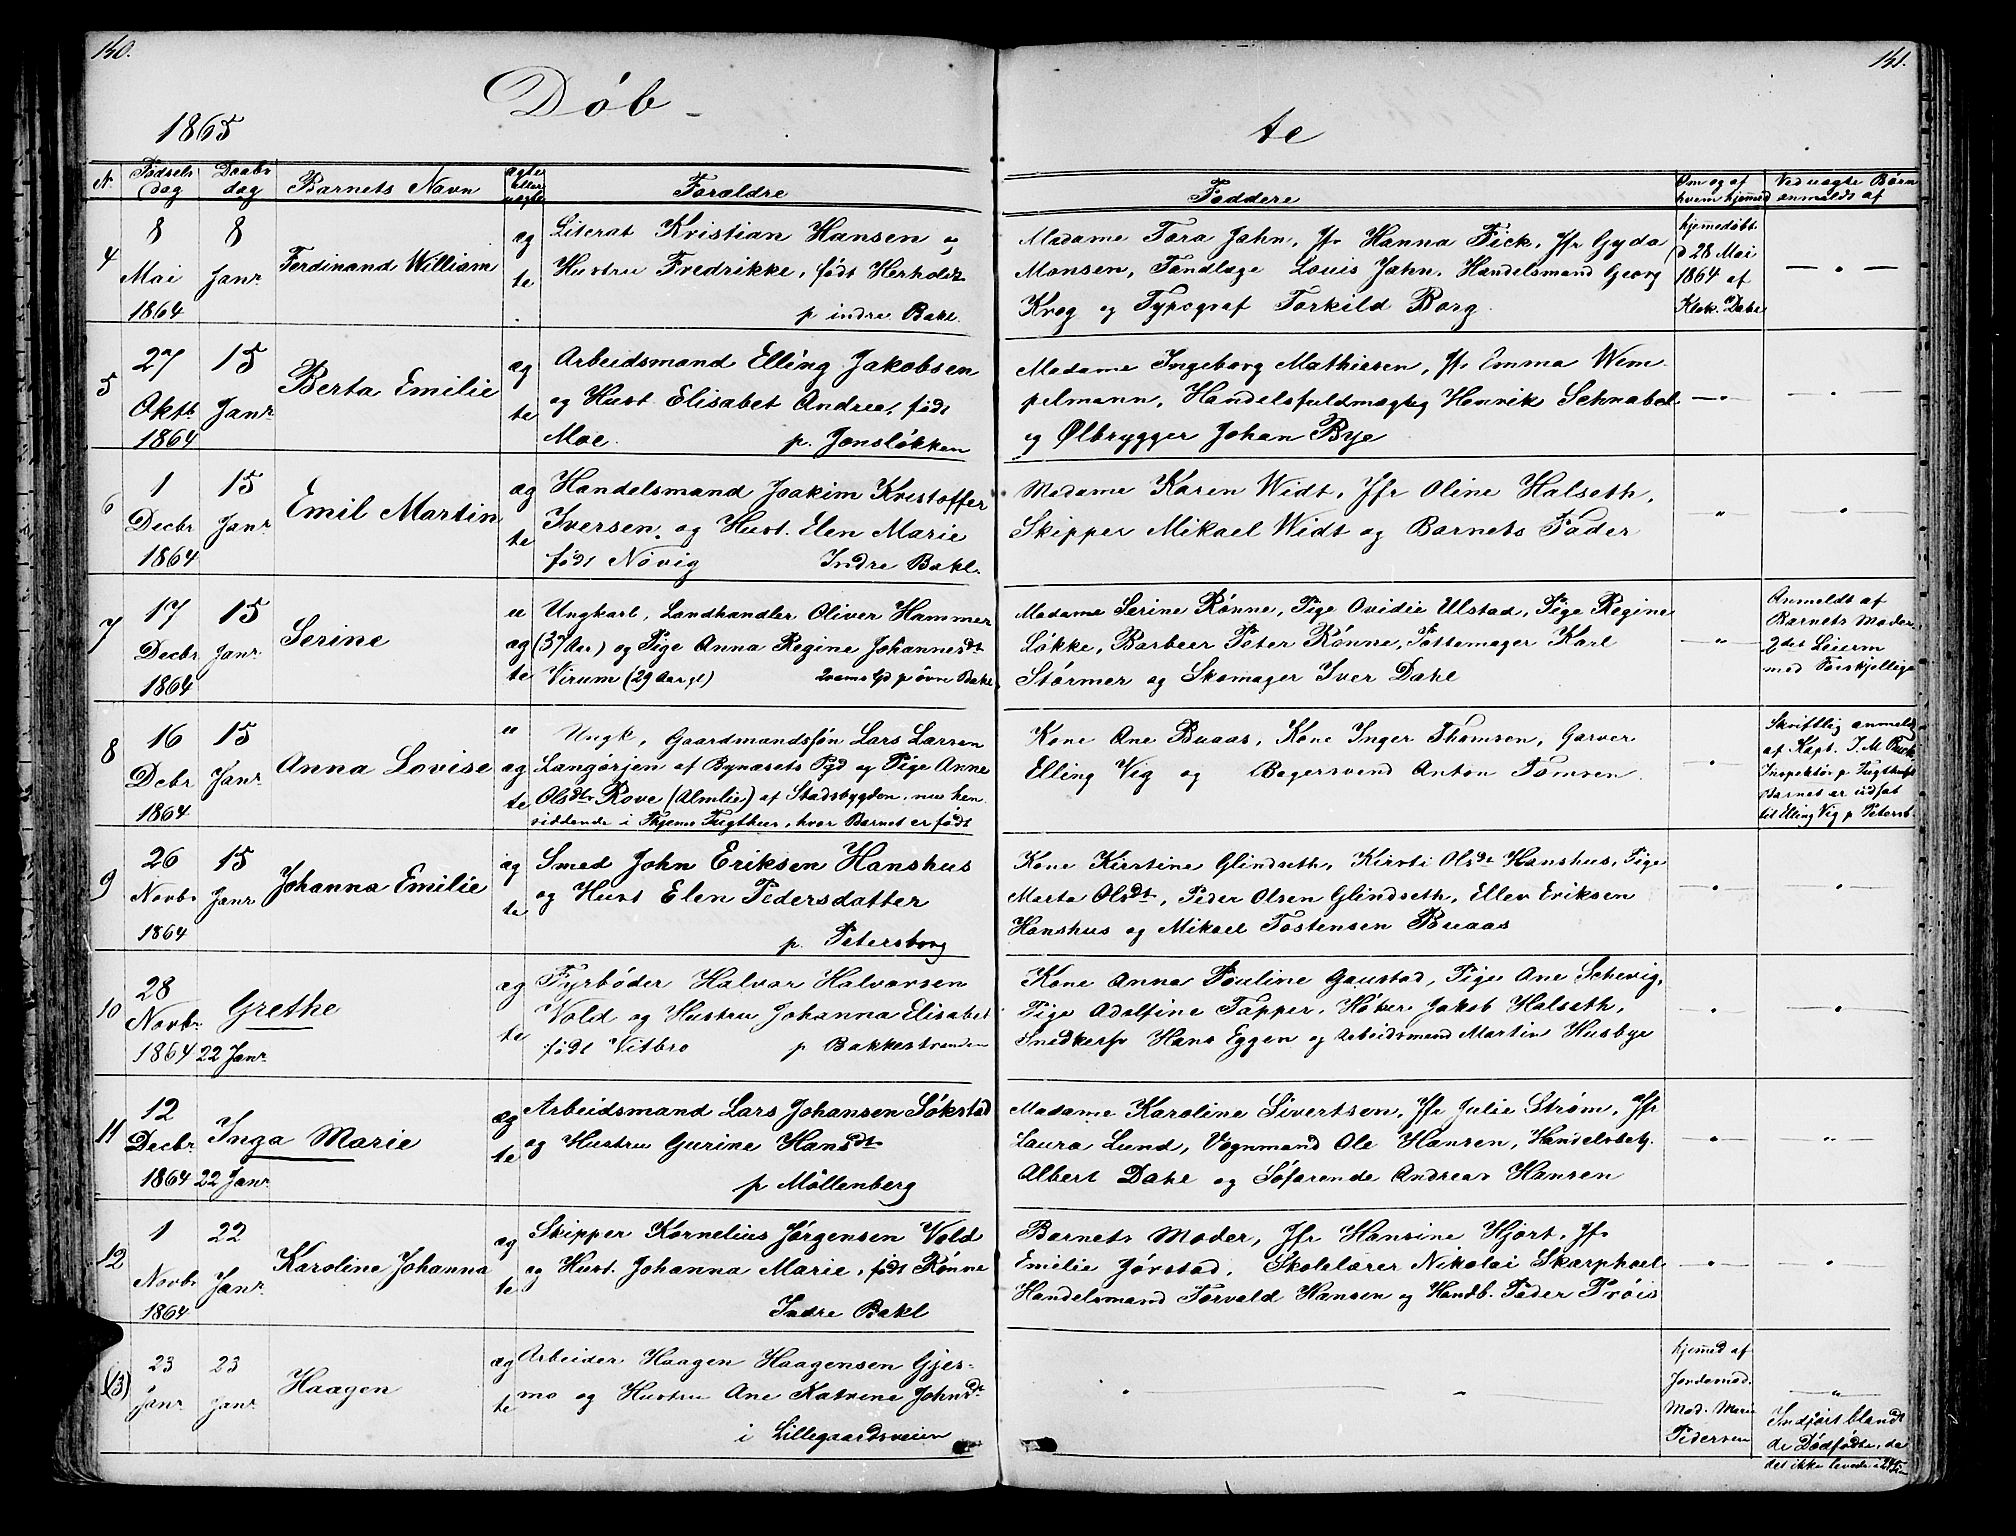 150.
151.
Døb-
te
1865
N.
Fødsels
dag
Daabs
dag
Barnets Navn
ægte
eller
uægte
Forældre
Faddere
Om og af
hvem hjemmed
Ved uægte Børn
anmeldt af
4
8
Mai
1864
8
Janr
Ferdinand William
æg
te
Literat Kristian Hansen og
Hustru Fredrikke, født Herholdt
p indre Bakl.
Madame Tora Jahn, Jfr Hanna Fick, Jfr Gyda
Monsen, Tandlæge Louis Jahn, Handelsmand Georg
Krog og Typograf Torkild Borg.
hjemmedøbt
d 28 Mai
1864 af
Klok. Dahl
5
27
Oktb.
1864
15
Janr
Berta Emilie
æg
te
Arbeidsmand Elling Jakobsen
og Hust. Elisabet Andrea, født
Moe. p. Jonsløkken
Madame Ingeborg Mathiesen, Jfr Emma Wem-
pelmann, Handelsfuldmægtig Henrik Schnabel
og Ølbrygger Johan Bye
6
1
Decbr
1864
15
Janr
Emil Martin
æg
te
Handelsmand Joakim Kristoffer
Iversen og Hust. Elen Marie
født Növig Indre Bakl.
Madame Karen Widt, Jfr Oline Halseth,
Skipper Mikael Widt og Barnets Fader
7
17
Decbr
1864
15
Janr
Serine
u
æg
te
Ungkarl, Landhandler Oliver Hammer
(37 Aar) og Pige Anna Regine Johannesdt
Virum (29 Aar gl) p øvre Bakl.
Madame Serine Rönne, Pige Ovidie Ulstad, Pige Regine
Løkke, Barbeer Peter Rönne, Pottemager Karl
Störmer og Skomager Iver Dahl
Anmeldt af
Barnets Moder
2det Leierm
med Forskjellige
8
16
Decbr
1864
15
Janr
Anna Lovise
u
æg
te
Ungk, Gaardmandssøn Lars Larsen
Langørjen af Bynæsets Pgd og Pige Anne
Olsdtr Rove (Almlie) af Stadsbygden, nu hen
siddende i Thjems Tugthus, hvor Barnet er født
Kone Ane Buaas, Kone Inger Thomsen, Garver
Elling Vig og Bagersvend Anton Tomsen
Skriftlig anmeldt
af Kapt.
Inspektør p Tugthuset
Barnet er udsat
til Elling Vig p Petersb.
9
26
Novbr
1864
15
Janr
Johanna Emilie
æg
te
Smed John Eriksen Hanshus
og Hust Elen Pedersdatter
p. Petersborg
Kone Kirstine Glindseth, Kirsti Olsdt Hanshus, Pige
Marta Olsdt, Peder Olsen Glindseth, Ellev Eriksen
Hanshus og Mikael Tostensen Buaas
10
28
Novbr
1864
22 Janr
Grethe
æg
te
Fyrbøder Halvor Halvorsen
Vold og Hustru Johanna Elisabet
født Vitbro p Bakkestranden
Kone Anna Pouline Gaustad, Pige Ane Schevig,
Pige Adolfine Tapper, Høker Jakob Halseth,
Snedkersv Hans Eggen og Arbeidsmand Martin Husbye
11
12
Decbr
1864
22 Janr
Inga Marie
æg
te
Arbeidsmand Lars Johansen Søkstad
og Hustru Gurine Hansdt
p Möllenberg
Madame Karoline Sivertsen, Jfr Julie Strøm, Jfr
Laura Lund, Vognmand Ole Hansen, Handelsbetj.
Albert Dahl og Søfarende Andreas Hansen
12
1
Novbr
1864
22
Janr
Karolina Johanna
æg
te
Skipper Kornelius Jørgensen Vold
og Hust. Johanna Marie, født Rönne
Indre Bakl
Barnets Moder, Jfr Hansine Hjort, Jfr
Emilie Jörstad, Skolelærer Nikolai Skarphoel
Handelsmand Torvald Hansen og Handb. Peder Tröis
(13)
23
Janr
23
Janr
Haagen
æg
te
Arbeider Haagen Haagensen Gjes-
mo og Hustru Ane Katrine Johnsdt
i Lillegaardsveien
hjemmed af
Jordemod.
Mad. Marie
Pedersen
Indført blandt
de Dødfødte, da
det ikke levede i 24 Tim